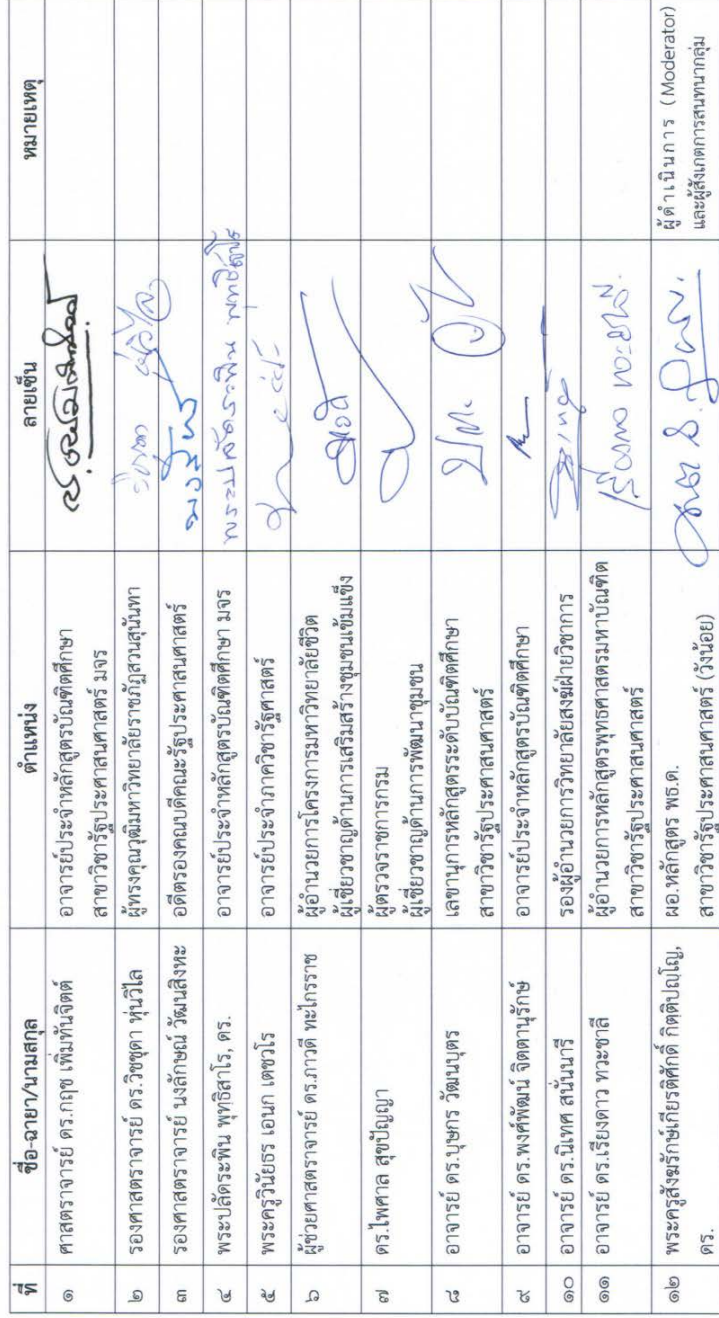 ที่ ชื่อ-ฉายา/นามสกุล ตำแหน่ง ลายเซ็น หมายเหตุ
๑ ศาสตราจารย์ ดร.กฤช เพิ่มทันจิตต์ อาจารย์ประจำหลักสูตรบัณฑิตศึกษา
สาขาวิชารัฐประศาสนศาสตร์ มจร
๒ รองศาสตราจารย์ ดร.วิชชุดา หุ่นวิไล ผู้ทรงคุณวุฒิมหาวิทยาลัยราชภัฏสวนสุนันทา
๓ รองศาสตราจารย์ นงลักษณ์ วัฒนสิงหะ อดีตรองคณบดีคณะรัฐประศาสนศาสตร์
๔ พระปลัดระพิน พุทธิสาโร, ดร. อาจารย์ประจำหลักสูตรบัณฑิตศึกษา มจร พระปลัดระพิน พุทธิสาโร
๕ พระครูวินัยธร เอนก เตชวโร อาจารย์ประจำภาควิชารัฐศาสตร์
๖ ผู้ช่วยศาสตราจารย์ ดร.ภาวดี ทะไกรราช ผู้อำนวยการโครงการมหาวิทยาลัยชีวิต
ผู้เชี่ยวชาญด้านการเสริมสร้างชุมชนเข้มแข็ง
๗ ดร.ไพศาล สุขปัญญา ผู้ตรวจราชการกรม
ผู้เชี่ยวชาญด้านการพัฒนาชุมชน
๘ อาจารย์ ดร.บุษกร วัฒนบุตร เลขานุการหลักสูตรระดับบัณฑิตศึกษา
สาขาวิชารัฐประศาสนศาสตร์
๙ อาจารย์ ดร.พงศ์พัฒน์ จิตตานุรักษ์ อาจารย์ประจำหลักสูตรบัณฑิตศึกษา
๑๐ อาจารย์ ดร.นิเทศ สนั่นนารี รองผู้อำนวยการวิทยาลัยสงฆ์ฝ่ายวิชาการ
๑๑ อาจารย์ ดร.เรียงดาว ทวะชาลี ผู้อำนวยการหลักสูตรพุทธศาสตรมหาบัณฑิต
สาขาวิชารัฐประศาสนศาสตร์
๑๒ พระครูสังฆรักษ์เกียรติศักดิ์ กิตติปญฺโญ, ผอ.หลักสูตร พธ.ด. ผู้ดำเนินการ (Moderator)
ดร. สาขาวิชารัฐประศาสนศาสตร์ (วังน้อย) และผู้สังเกตการสนทนากลุ่ม